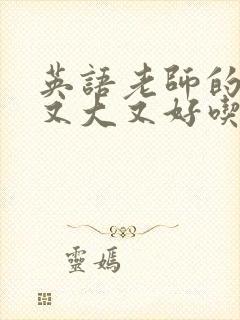 英語老師的
又大又好喫
靈媽